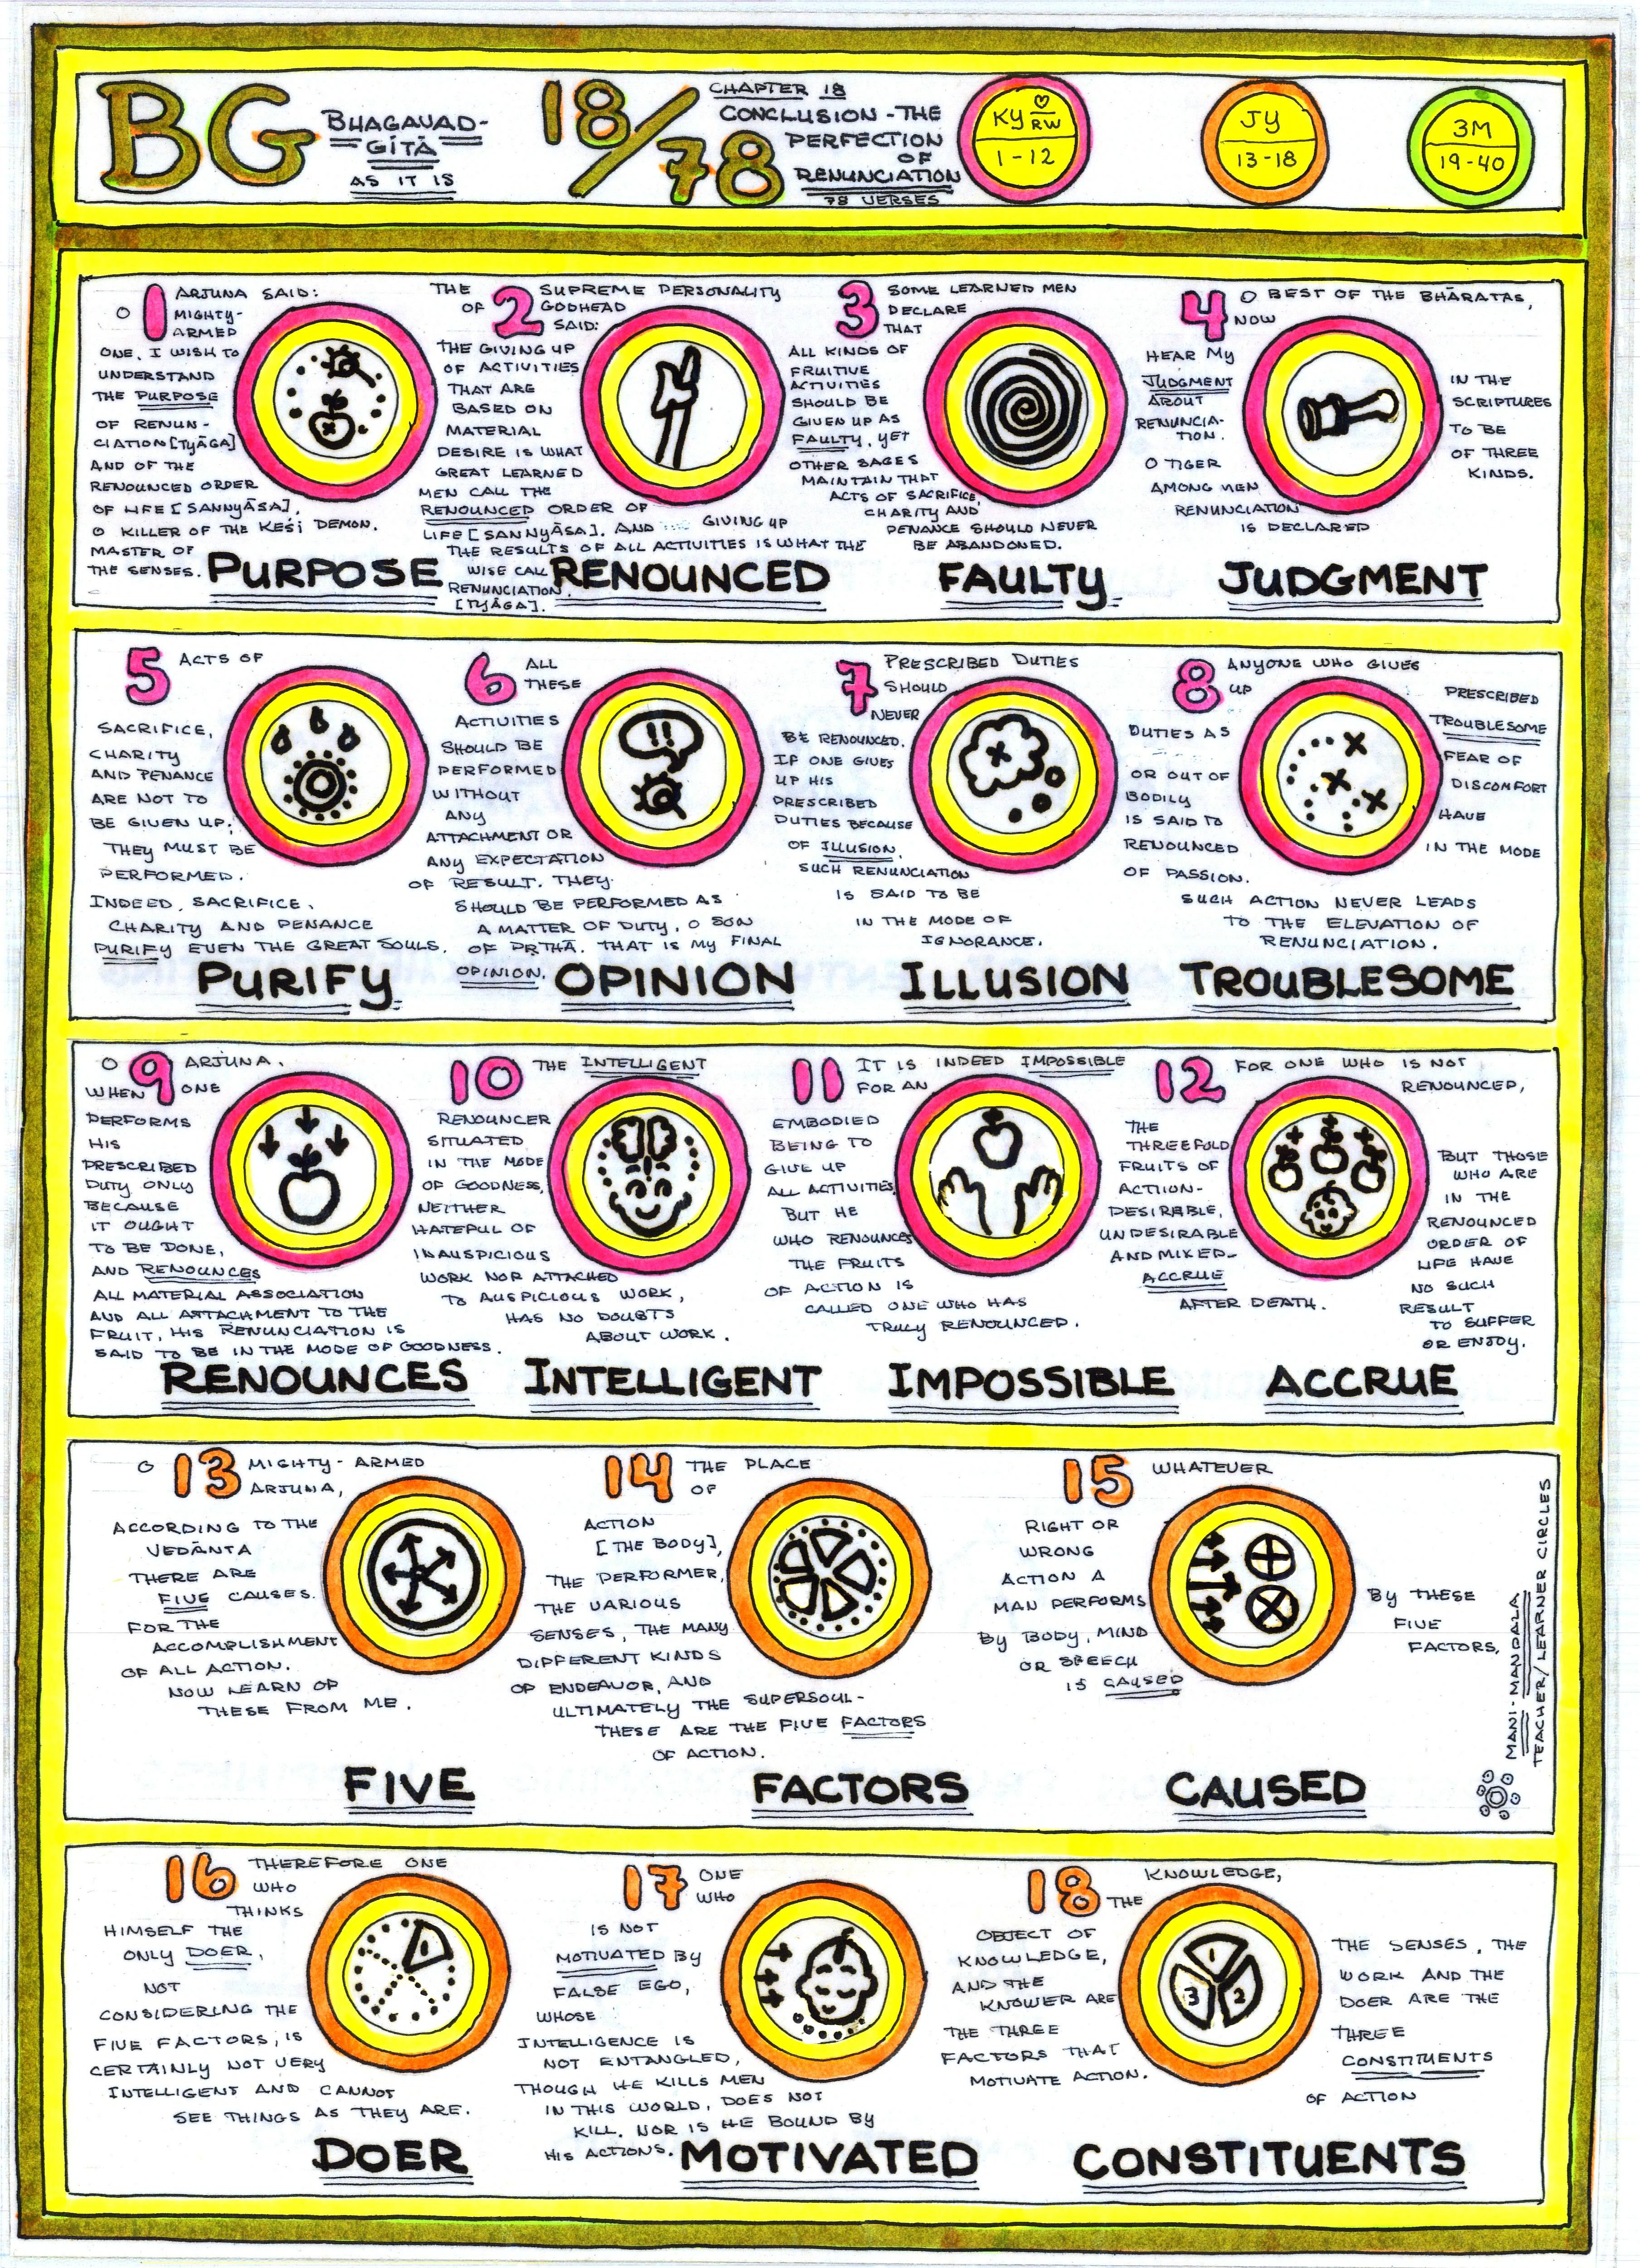 BG
BHAGAVAD-
GĪTĀ
AS IT IS
18/78
CHAPTER 18
CONCLUSION - THE
PERFECTION
OF
RENUNCIATION
78 VERSES
KY ♡ RW
1-12
JY
13-18
3M
19-40
1 ARJUNA SAID:
O MIGHTY-
ARMED
ONE, I WISH TO
UNDERSTAND
THE PURPOSE
OF RENUN-
CIATION [TYĀGA]
AND OF THE
RENOUNCED ORDER
OF LIFE [SANNYĀSA],
O KILLER OF THE KEŚI DEMON,
MASTER OF
THE SENSES.
PURPOSE
2 THE SUPREME PERSONALITY
OF GODHEAD
SAID:
THE GIVING UP
OF ACTIVITIES
THAT ARE
BASED ON
MATERIAL
DESIRE IS WHAT
GREAT LEARNED
MEN CALL THE
RENOUNCED ORDER OF
LIFE [SANNYĀSA]. AND GIVING UP
THE RESULTS OF ALL ACTIVITIES IS WHAT THE
WISE CALL
RENUNCIATION
[TYĀGA].
RENOUNCED
3 SOME LEARNED MEN
DECLARE
THAT
ALL KINDS OF
FRUITIVE
ACTIVITIES
SHOULD BE
GIVEN UP AS
FAULTY, YET
OTHER SAGES
MAINTAIN THAT
ACTS OF SACRIFICE,
CHARITY AND
PENANCE SHOULD NEVER
BE ABANDONED.
FAULTY
4 O BEST OF THE BHĀRATAS,
NOW
HEAR MY
JUDGMENT
ABOUT
RENUNCIA-
TION.
O TIGER
AMONG MEN
RENUNCIATION
IS DECLARED
IN THE
SCRIPTURES
TO BE
OF THREE
KINDS.
JUDGMENT
5 ACTS OF
SACRIFICE,
CHARITY
AND PENANCE
ARE NOT TO
BE GIVEN UP;
THEY MUST BE
PERFORMED.
INDEED, SACRIFICE,
CHARITY AND PENANCE
PURIFY EVEN THE GREAT SOULS.
PURIFY
6 ALL
THESE
ACTIVITIES
SHOULD BE
PERFORMED
WITHOUT
ANY
ATTACHMENT OR
ANY EXPECTATION
OF RESULT. THEY
SHOULD BE PERFORMED AS
A MATTER OF DUTY, O SON
OF PṚTHĀ. THAT IS MY FINAL
OPINION.
!!
OPINION
7 PRESCRIBED DUTIES
SHOULD
NEVER
BE RENOUNCED.
IF ONE GIVES
UP HIS
PRESCRIBED
DUTIES BECAUSE
OF ILLUSION,
SUCH RENUNCIATION
IS SAID TO BE
IN THE MODE OF
IGNORANCE.
ILLUSION
8 ANYONE WHO GIVES
UP PRESCRIBED
DUTIES AS TROUBLESOME
OR OUT OF FEAR OF
BODILY DISCOMFORT
IS SAID TO HAVE
RENOUNCED IN THE MODE
OF PASSION.
SUCH ACTION NEVER LEADS
TO THE ELEVATION OF
RENUNCIATION.
TROUBLESOME
9 O ARJUNA,
WHEN ONE
PERFORMS
HIS
PRESCRIBED
DUTY ONLY
BECAUSE
IT OUGHT
TO BE DONE,
AND RENOUNCES
ALL MATERIAL ASSOCIATION
AND ALL ATTACHMENT TO THE
FRUIT, HIS RENUNCIATION IS
SAID TO BE IN THE MODE OF GOODNESS.
RENOUNCES
10 THE INTELLIGENT
RENOUNCER
SITUATED
IN THE MODE
OF GOODNESS,
NEITHER
HATEFUL OF
INAUSPICIOUS
WORK NOR ATTACHED
TO AUSPICIOUS WORK,
HAS NO DOUBTS
ABOUT WORK.
INTELLIGENT
11 IT IS INDEED IMPOSSIBLE
FOR AN
EMBODIED
BEING TO
GIVE UP
ALL ACTIVITIES,
BUT HE
WHO RENOUNCES
THE FRUITS
OF ACTION IS
CALLED ONE WHO HAS
TRULY RENOUNCED.
IMPOSSIBLE
12 FOR ONE WHO IS NOT
RENOUNCED,
THE
THREEFOLD
FRUITS OF
ACTION-
DESIRABLE,
UNDESIRABLE
AND MIXED-
ACCRUE
AFTER DEATH.
BUT THOSE
WHO ARE
IN THE
RENOUNCED
ORDER OF
LIFE HAVE
NO SUCH
RESULT
TO SUFFER
OR ENJOY.
ACCRUE
13 O MIGHTY-ARMED
ARJUNA,
ACCORDING TO THE
VEDĀNTA
THERE ARE
FIVE CAUSES
FOR THE
ACCOMPLISHMENT
OF ALL ACTION.
NOW LEARN OF
THESE FROM ME.
FIVE
14 THE PLACE
OF
ACTION
[THE BODY],
THE PERFORMER,
THE VARIOUS
SENSES, THE MANY
DIFFERENT KINDS
OF ENDEAVOR, AND
ULTIMATELY THE SUPERSOUL-
THESE ARE THE FIVE FACTORS
OF ACTION.
FACTORS
15 WHATEVER
RIGHT OR
WRONG
ACTION A
MAN PERFORMS
BY BODY, MIND
OR SPEECH
IS CAUSED
BY THESE
FIVE
FACTORS,
CAUSED
MANI-MANDALA
TEACHER/LEARNER CIRCLES
16 THEREFORE ONE
WHO
THINKS
HIMSELF THE
ONLY DOER,
NOT
CONSIDERING THE
FIVE FACTORS, IS
CERTAINLY NOT VERY
INTELLIGENT AND CANNOT
SEE THINGS AS THEY ARE.
1
DOER
17 ONE
WHO
IS NOT
MOTIVATED BY
FALSE EGO,
WHOSE
INTELLIGENCE IS
NOT ENTANGLED,
THOUGH HE KILLS MEN
IN THIS WORLD, DOES NOT
KILL. NOR IS HE BOUND BY
HIS ACTIONS.
MOTIVATED
18 KNOWLEDGE,
THE
OBJECT OF
KNOWLEDGE,
AND THE
KNOWER ARE
THE THREE
FACTORS THAT
MOTIVATE ACTION.
1
3 2
THE SENSES, THE
WORK AND THE
DOER ARE THE
THREE
CONSTITUENTS
OF ACTION
CONSTITUENTS